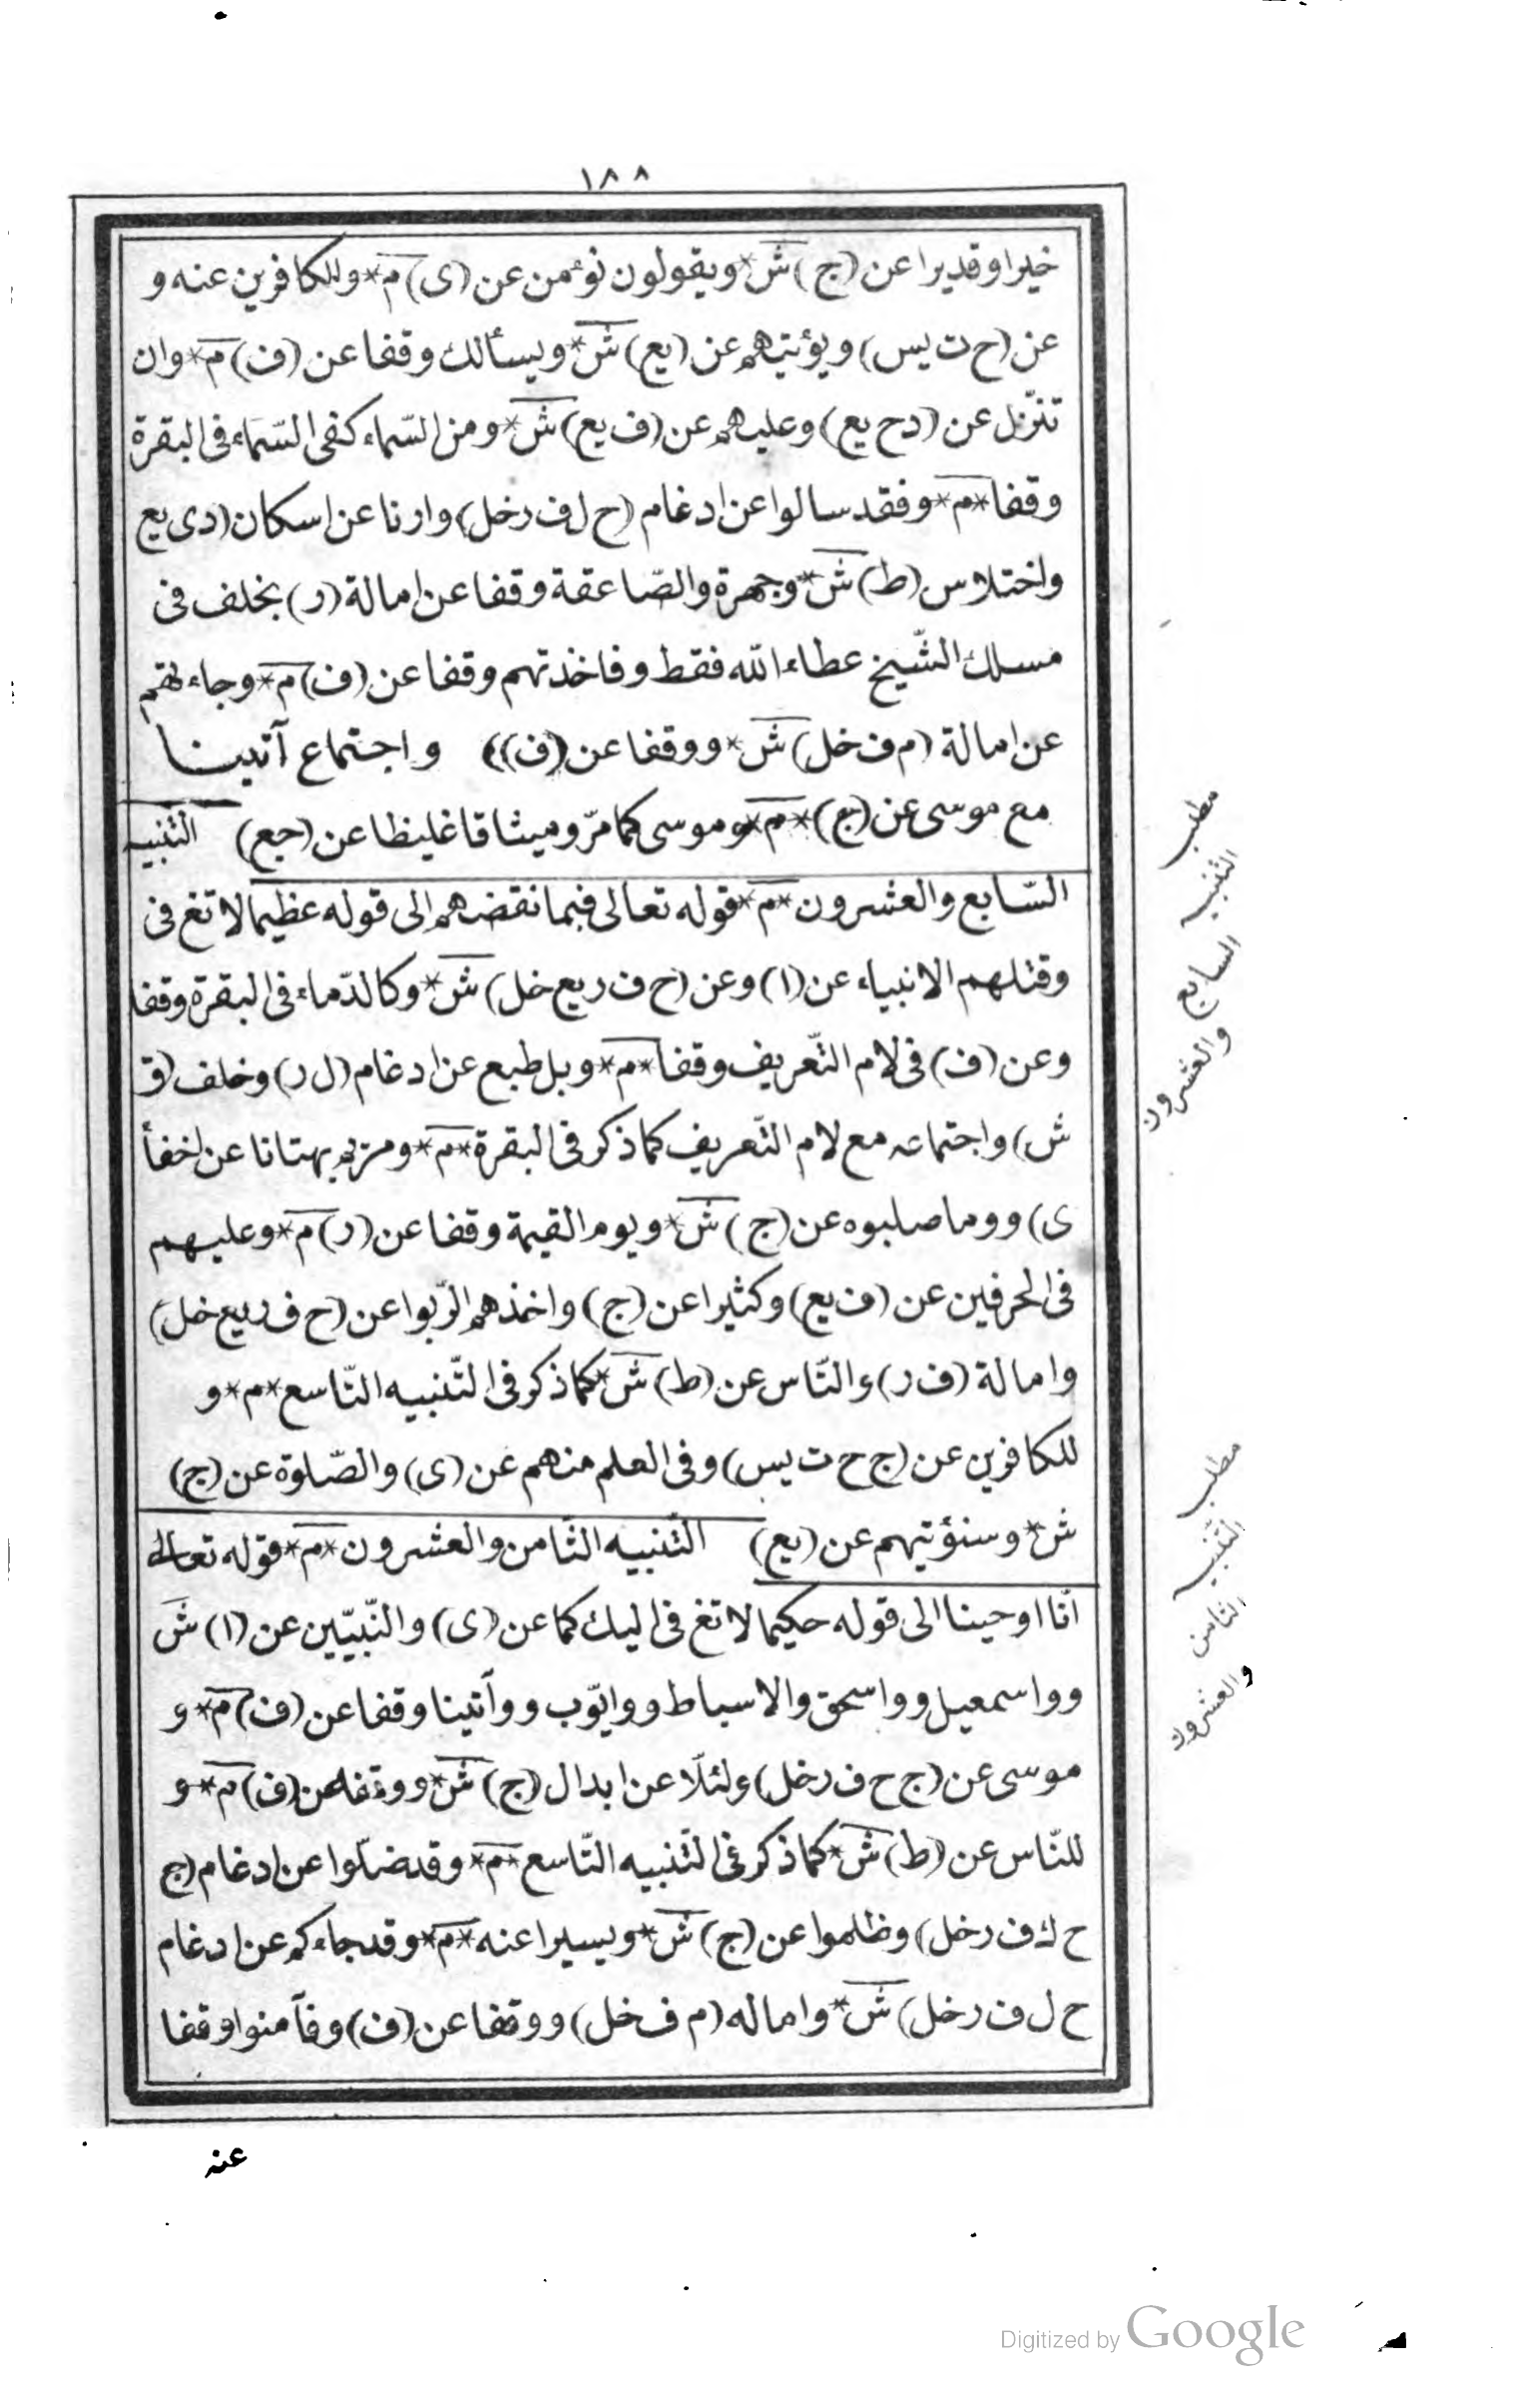 ١٨٨
خيرا وقديرا عن (ج) ش* ويقولون نؤمن عن (ى) م* وللكافرين عنه و
عن (ح ت يس) ويؤتيهم عن (يع) ش* ويسألك وقفا عن (ف) م* وان
تنزّل عن (د ح يع) وعليهم عن (ف يع) ش* ومن السّماء كفى السّماء فى البقرة
وقفا *م* وفقد سالوا عن ادغام (ح ل ف ر خل) وارنا عن اسكان (د ى يع
واختلاس (ط) ش* وجهرة والصّاعقة وقفا عن امالة (ر) بخلف فى
مسلك الشّيخ عطاء الله فقط وفاخذتهم وقفا عن (ف) م* وجاءتهم
عن امالة (م ف خل) ش* ووقفا عن (ف)) واجتماع آتينا
مع موسى عن (ج) *م* وموسى كما مرّ وميثاقا غليظا عن (جع) التّنبيه
السّابع والعشرون *م* قوله تعالى فبما نقضهم الى قوله عظيما لا تغ فى
وقتلهم الانبياء عن (ا) وعن (ح ف ر يع خل) ش* وكالدّماء فى البقرة وقفا
وعن (ف) فى لام التّعريف وقفا *م* وبل طبع عن ادغام (ل ر) وخلف (ق
ش) واجتماعه مع لام التّعريف كما ذكر فى البقرة *م* ومريم بهتانا عن اخفأ
ى) ووما صلبوه عن (ج) ش* ويوم القيمة وقفا عن (ر) م* وعليهم
فى الحرفين عن (ف يع) وكثيرا عن (ج) واخذهم الرّبوا عن (ح ف ر يع خل)
وامالة (ف ر) والنّاس عن (ط) ش* كما ذكر فى التّنبيه التّاسع *م* و
للكافرين عن (ج ح ت يس) وفى العلم منهم عن (ى) والصّلوة عن (ج)
ش* وسنؤتيهم عن (يع) التّنبيه الثّامن والعشرون *م* قوله تعالى
انّا اوحينا الى قوله حكيما لا تغ فى اليك كما عن (ى) والنّبيّين عن (ا) ش
وواسمعيل وواسحق والاسباط ووايّوب ووآتينا وقفا عن (ف) م* و
موسى عن (ج ح ف ر خل) ولئلّا عن ابدال (ج) ش* ووقفا عن (ف) م* و
للنّاس عن (ط) ش* كما ذكر فى التّنبيه التّاسع *م* وقد ضلّوا عن ادغام (ج
ح ك ف ر خل) وظلموا عن (ج) ش* ويسيرا عنه *م* وقد جاءكم عن ادغام
ح ل ف ر خل) ش* واماله (م ف خل) ووقفا عن (ف) وفآمنوا وقفا
عنه
مطلب
التنبيه
السابع
والعشرون
مطلب
التّنبيه
الثامن
والعشرون
Digitized by Google